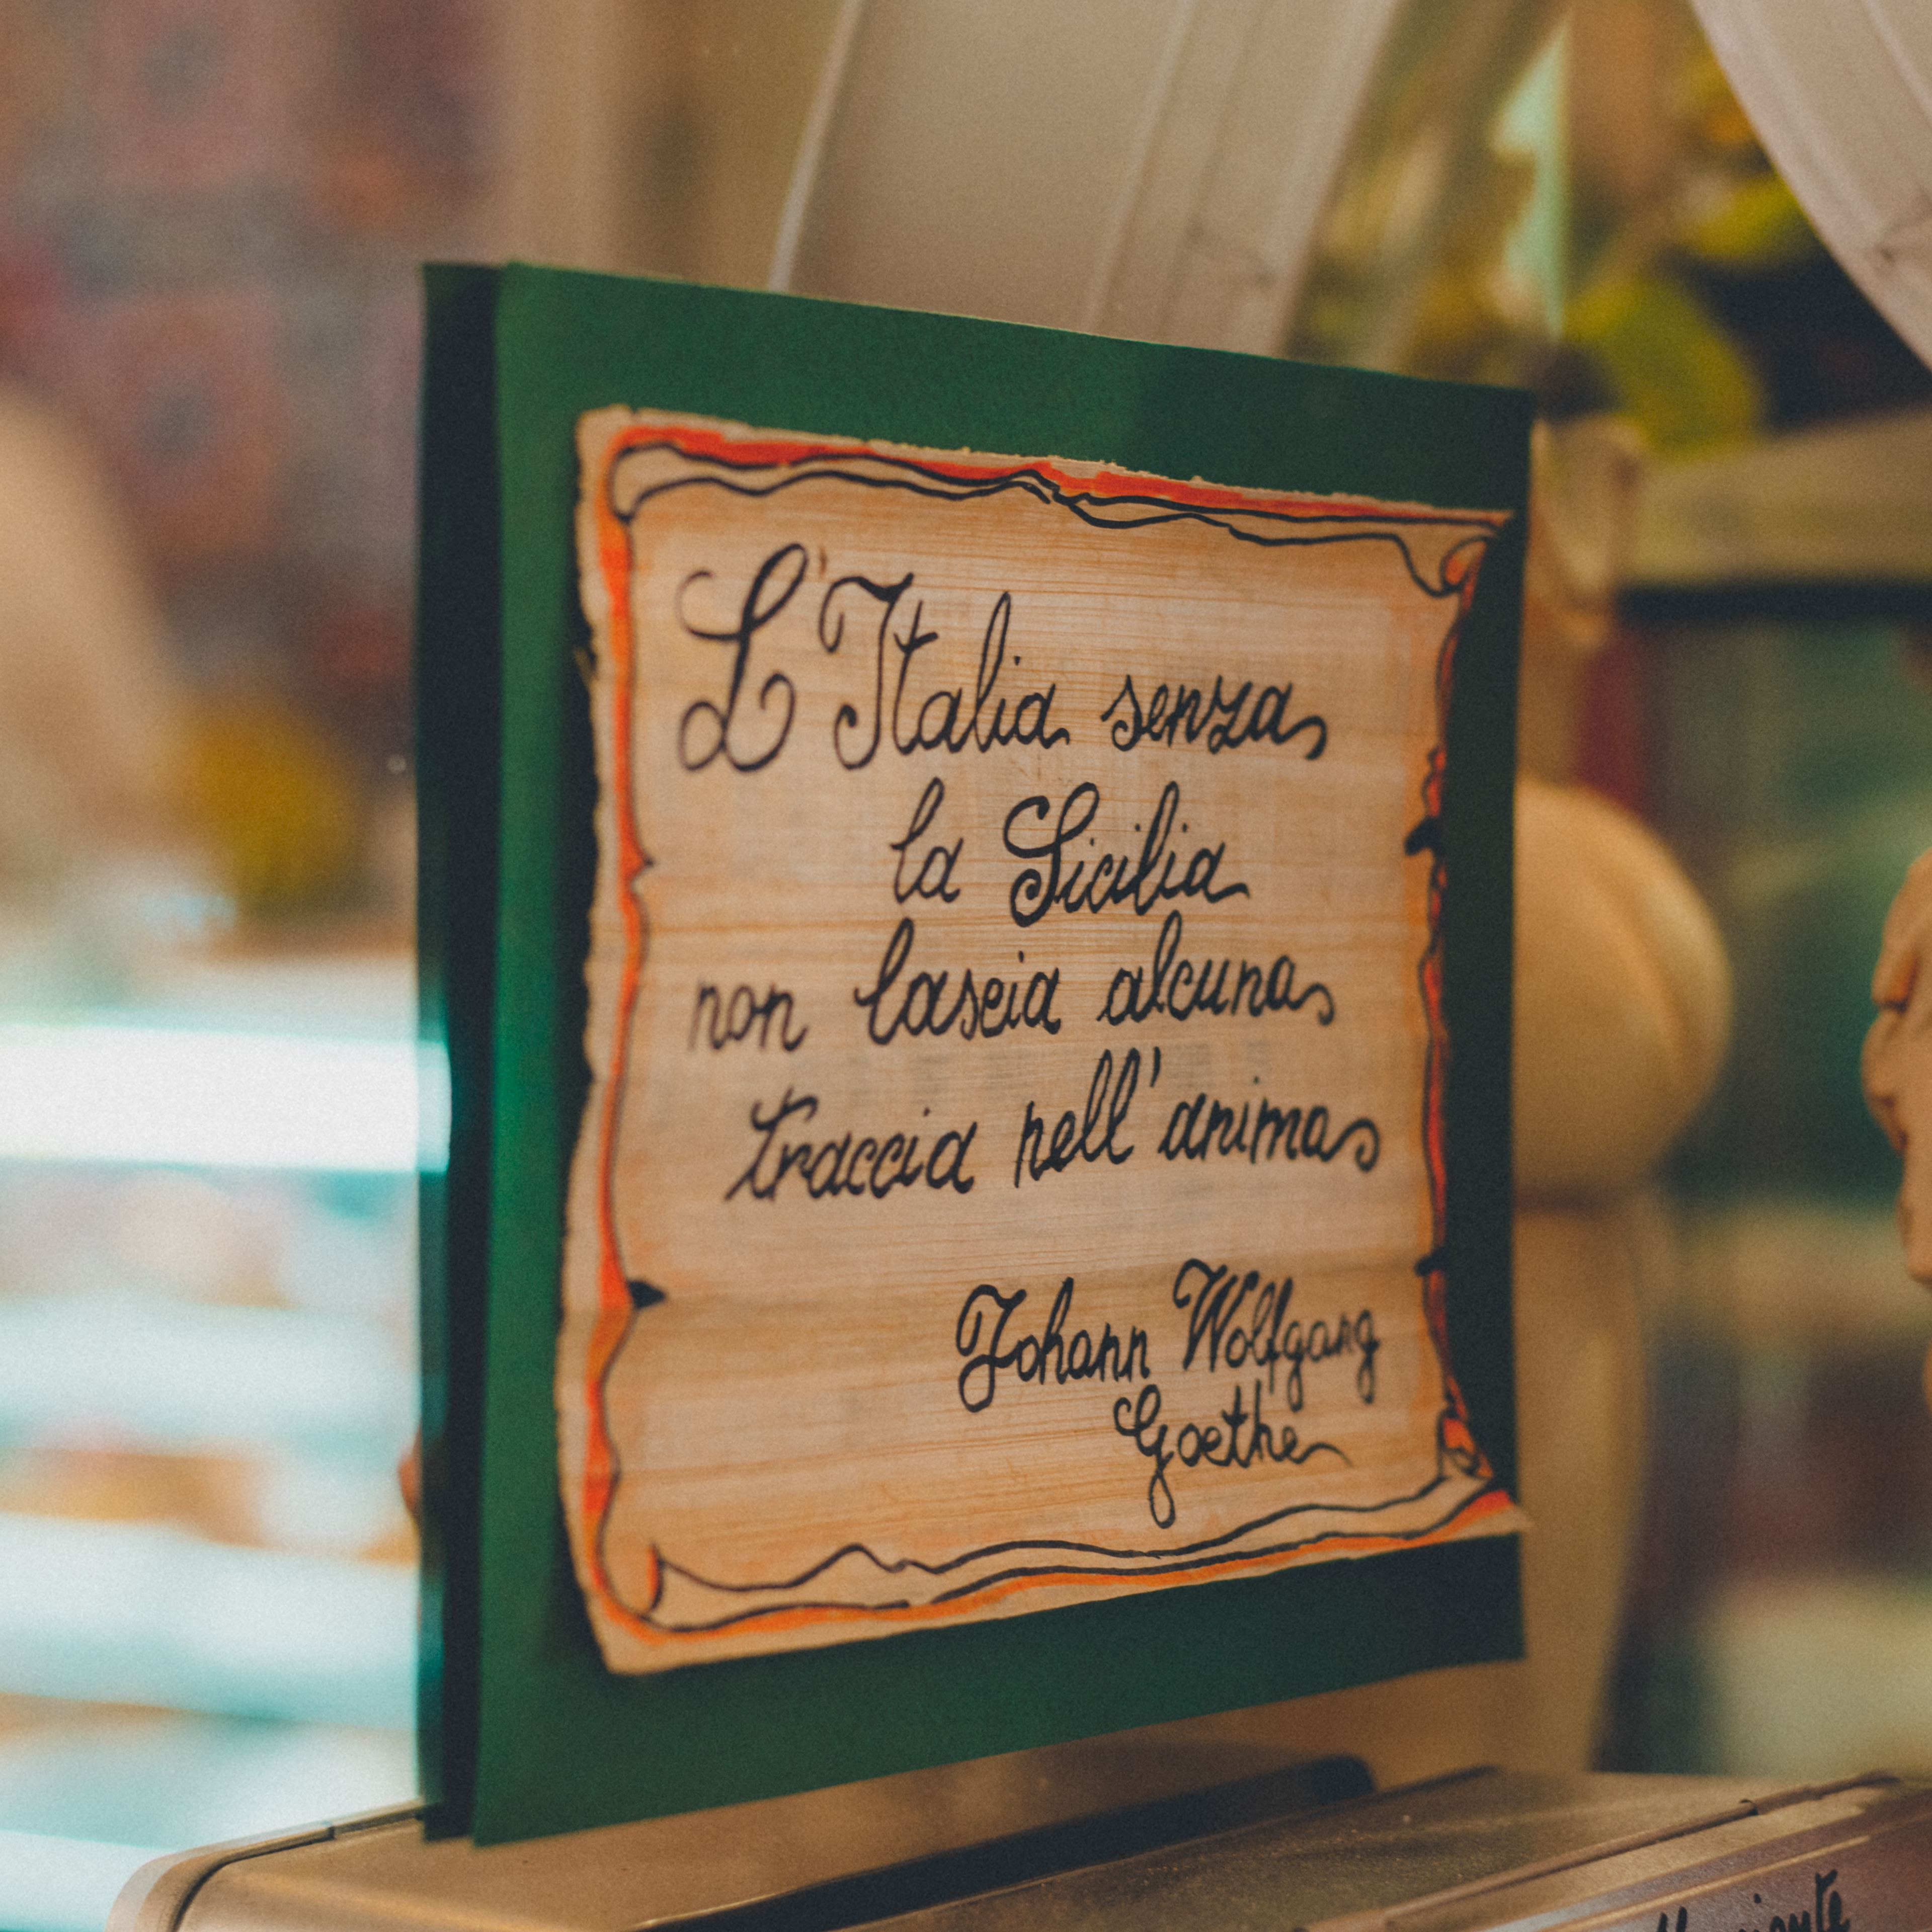 L'Italia senza
la Sicilia
non lascia alcuna
traccia nell'anima
Johann Wolfgang
Goethe